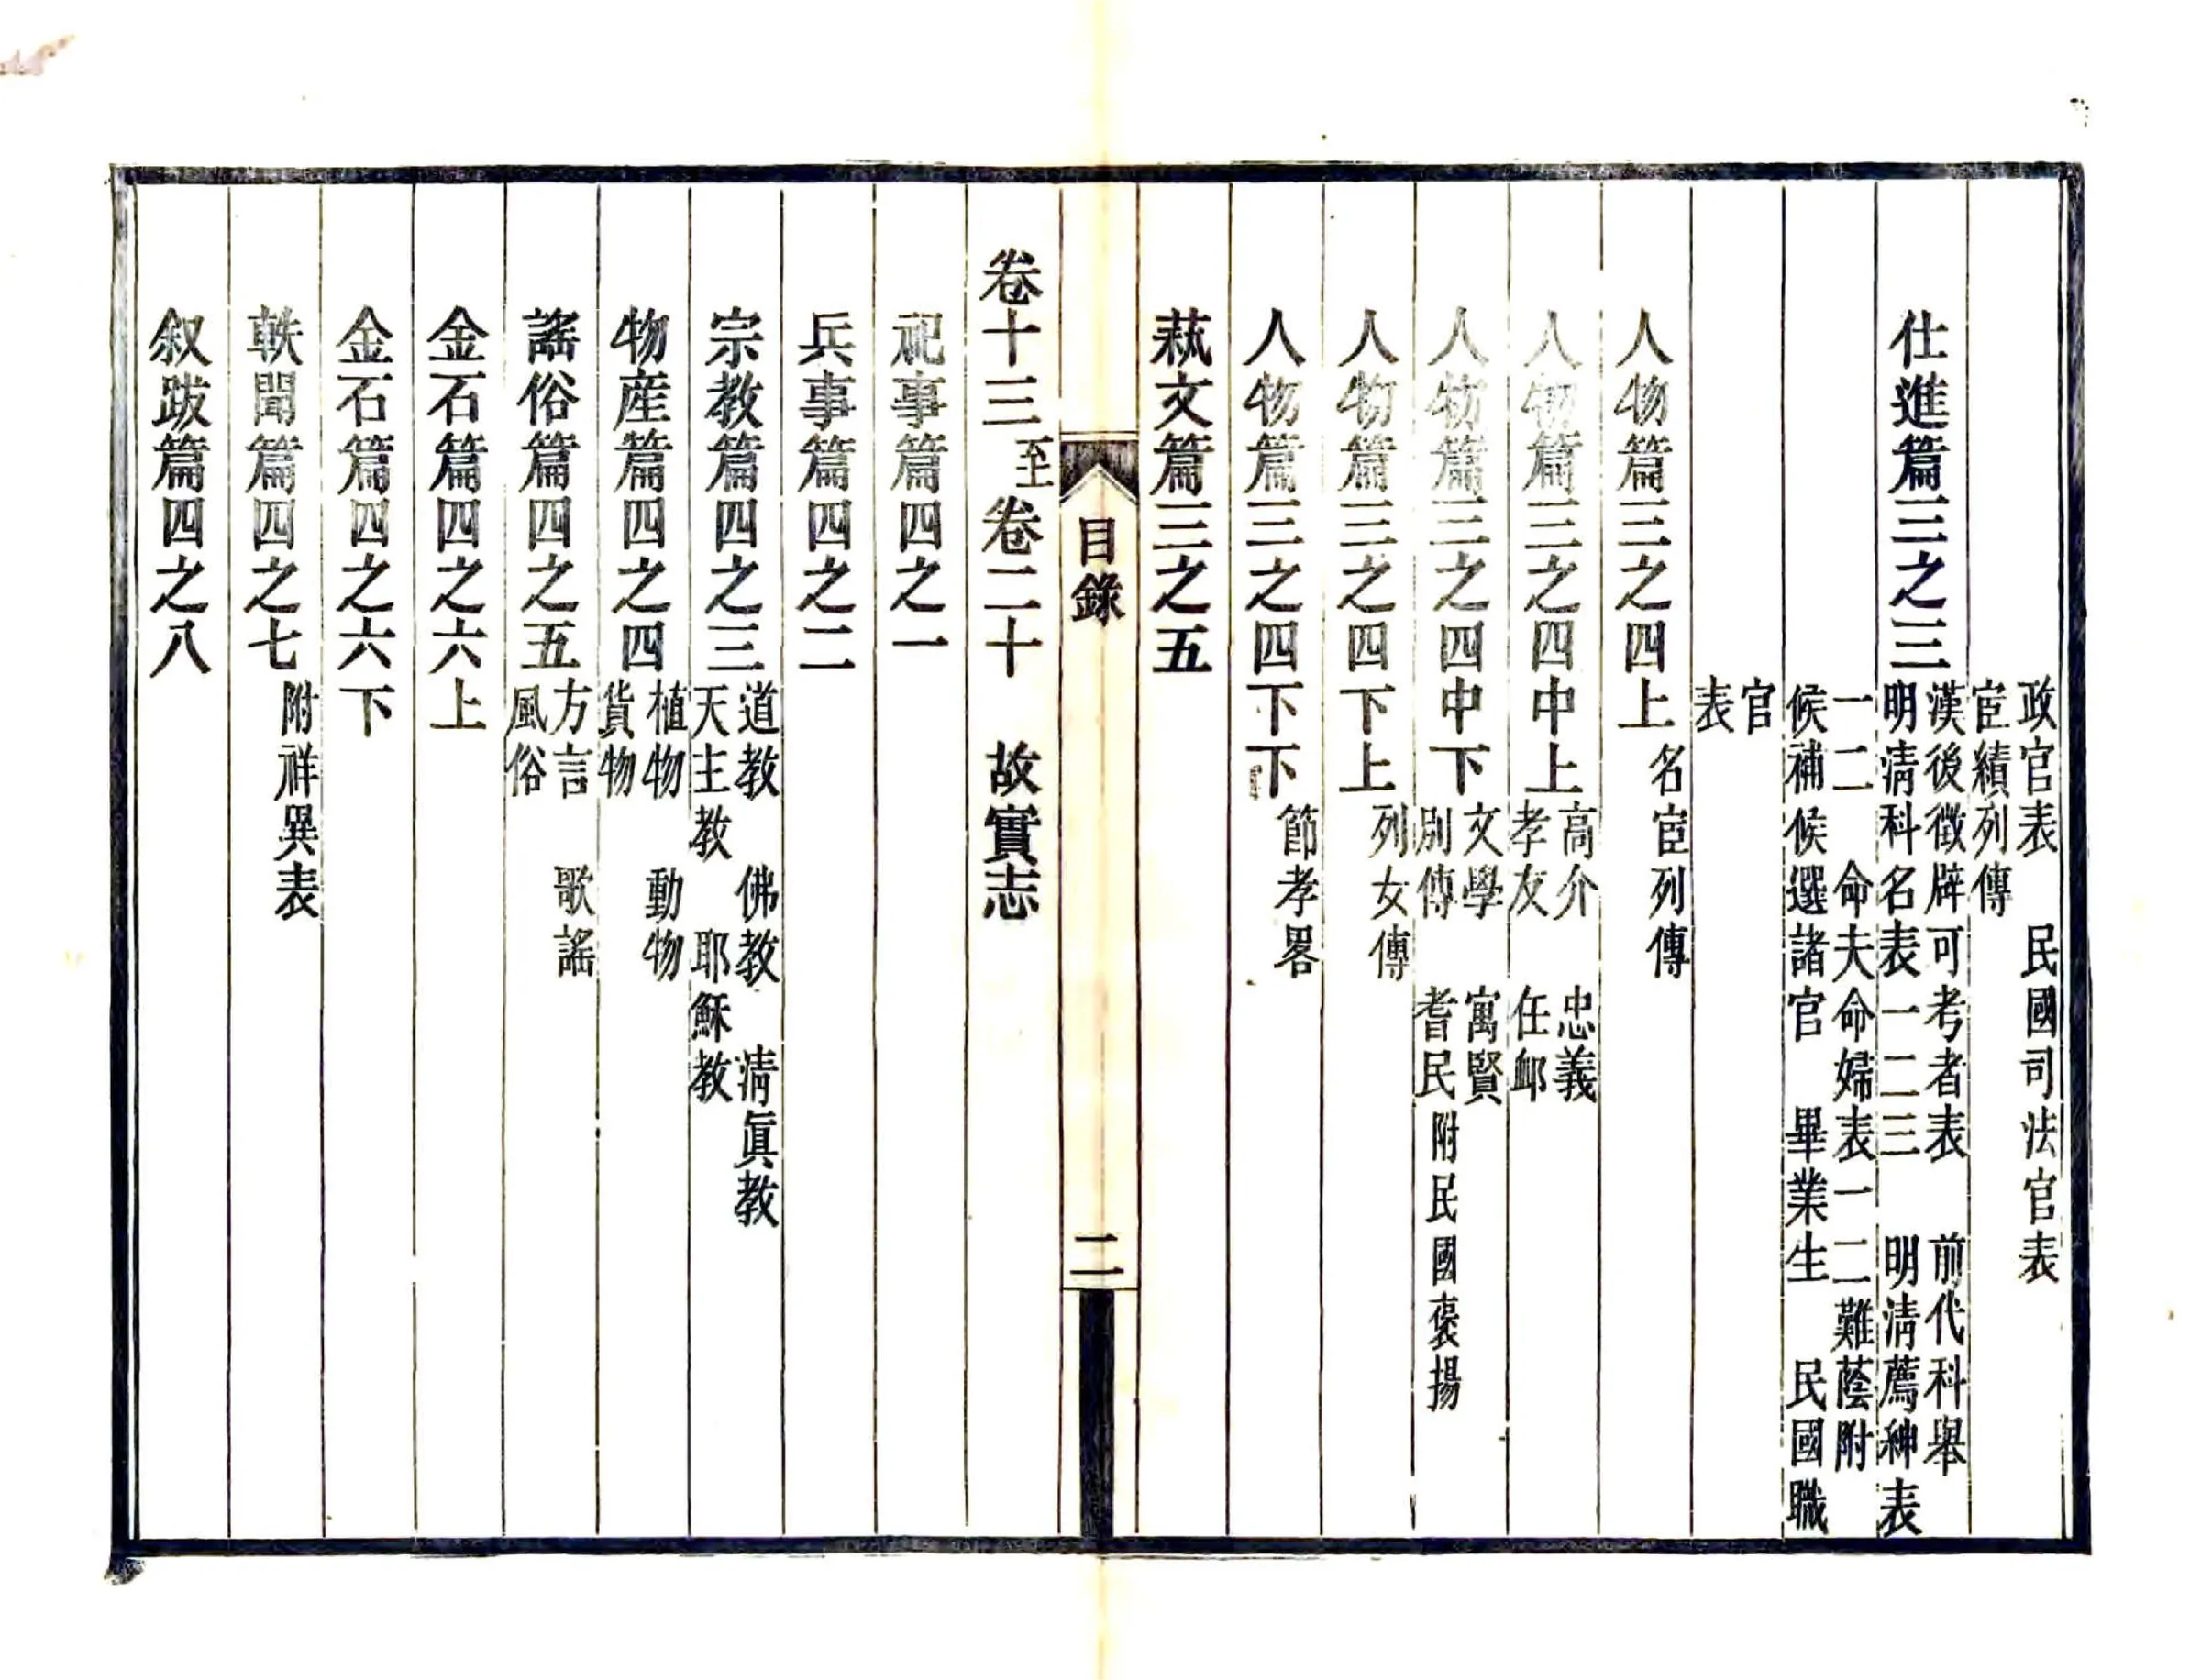 政官表　民國司法官表
宦績列傳
仕進篇三之三
漢後徵辟可考者表　前代科舉
明清科名表一二三　明清薦紳表
一二　命夫命婦表一二難蔭附
候補候選諸官　畢業生　民國職
官
表
人物篇三之四上　名宦列傳
人物篇三之四中上
高介　忠義
孝友　任䘏
人物篇三之四中下
文學　寓賢
別傳　耆民附民國褒揚
人物篇三之四下上　列女傳
人物篇三之四下下　節孝畧
蓺文篇三之五
目錄
二
卷十三至卷二十　故實志
祀事篇四之一
兵事篇四之二
宗教篇四之三
道教　佛教　清眞教
天主教　耶穌教
物產篇四之四
植物　動物
貨物
謠俗篇四之五
方言　歌謠
風俗
金石篇四之六上
金石篇四之六下
軼聞篇四之七　附祥異表
叙跋篇四之八